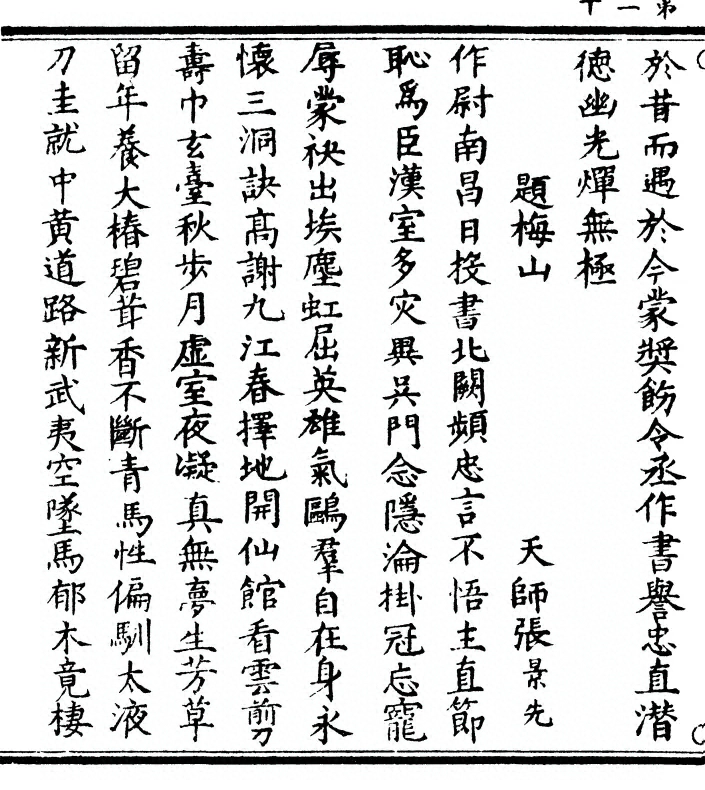 第一十
於昔而遇於今蒙奬飭令丞作書譽忠直潜
徳幽光燀無極
題梅山
天師張景先
作尉南昌日投書北闕頻忠言不悟主直節
恥爲臣漢室多灾異吴門念隱淪掛冠忘寵
辱蒙袂出埃塵虹屈英雄氣鷗羣自在身永
懷三洞訣髙謝九江春擇地開仙館看雲剪
壽巾玄臺秋歩月虚室夜凝真無夢生芳草
留年養大椿碧茸香不斷青馬性偏馴太液
刀圭就中黄道路新武夷空墜馬郁木竟棲